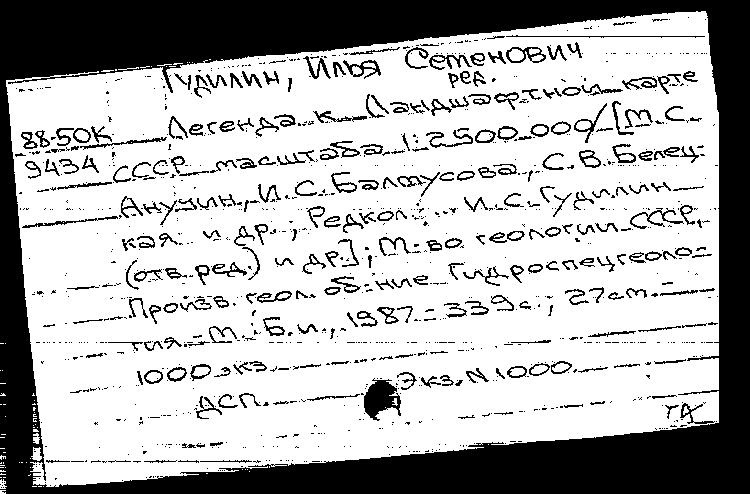 Гудилин, Илья Семенович
ред.
88-50К Легенда к Ландшафтной карте
9434 СССР масштаба 1:2500 000/[М.С.
Анучин, И.С. Балтусова, С.В. Белец-
кая и др.; Редкол.: ... И.С. Гудилин
(отв. ред.) и др.]; М-во геологии СССР,
Произв. геол. об-ние Гидроспецгеоло-
гия. - М.: Б.и., 1987 - 339с.; 27см. -
1000 экз
ДСП. Экз. N 1000
ТА